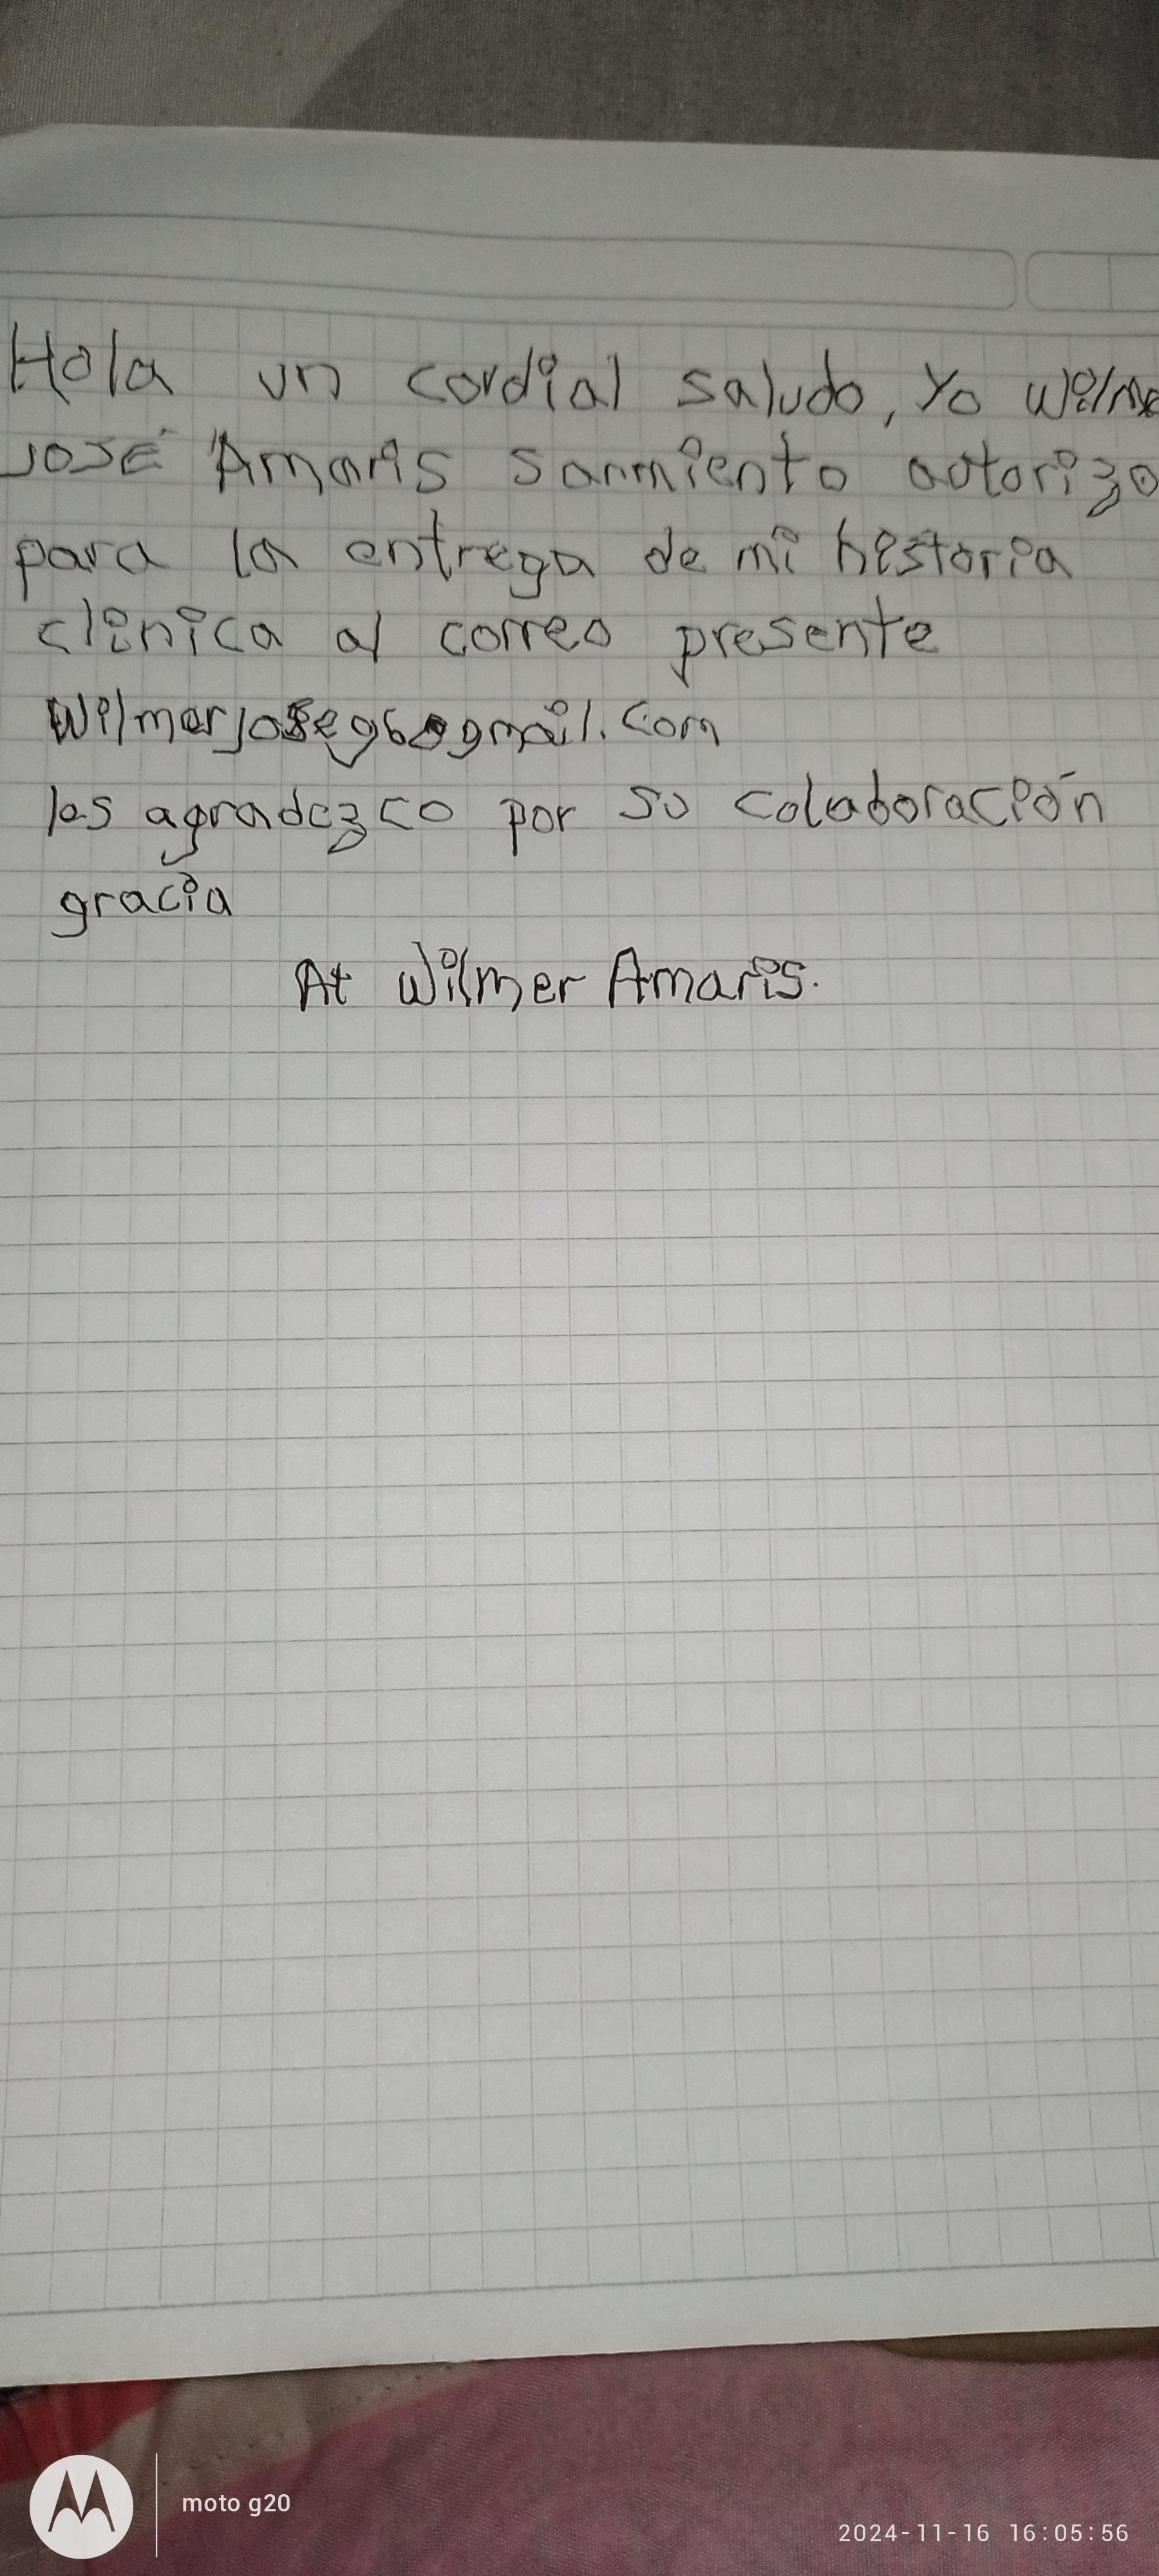 Hola un cordial saludo, Yo Wilme
JOSÉ Amaris Sarmiento autorizo
para la entrega de mi historia
clinica al correo presente
Wilmerjose96@gmail.com
les agradezco por su colaboración
gracia
At Wilmer Amaris.
moto g20
2024-11-16 16:05:56